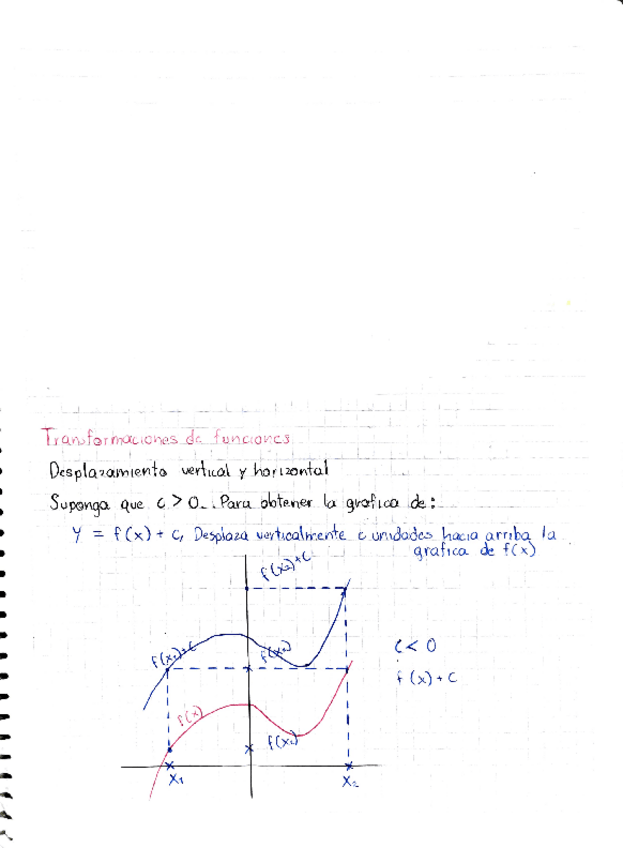 Transformaciones de funciones
Desplazamiento vertical y horizontal
Suponga que c > 0. Para obtener la grafica de:
y = f(x) + c, Desplaza verticalmente c unidades hacia arriba la
grafica de f(x)
f(x₂)+c
f(x₁)+c
f(x₂)
c < 0
f(x) + c
f(x)
f(x₁)
x₁
x₂